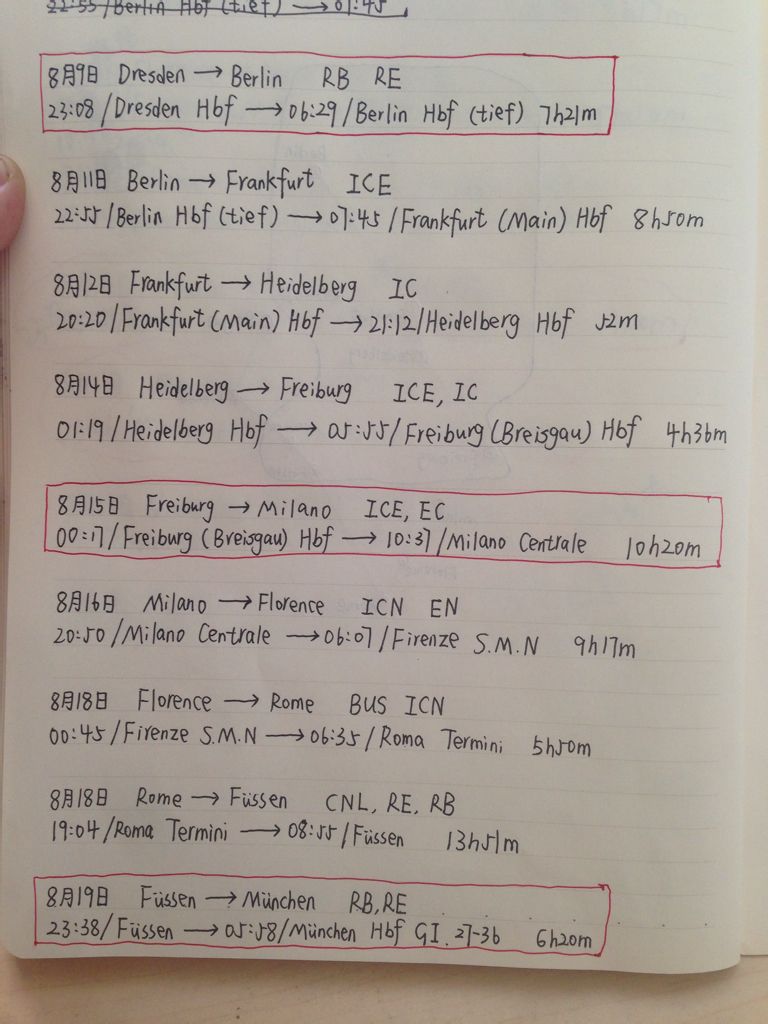 22:55/Berlin Hbf (tief) → 07:45
8月9日 Dresden → Berlin RB RE
23:08/Dresden Hbf → 06:29/Berlin Hbf (tief) 7h21m
8月11日 Berlin → Frankfurt ICE
22:55/Berlin Hbf (tief) → 07:45/Frankfurt (Main) Hbf 8h50m
8月12日 Frankfurt → Heidelberg IC
20:20/Frankfurt (Main) Hbf → 21:12/Heidelberg Hbf 52m
8月14日 Heidelberg → Freiburg ICE, IC
01:19/Heidelberg Hbf → 05:55/Freiburg (Breisgau) Hbf 4h36m
8月15日 Freiburg → Milano ICE, EC
00:17/Freiburg (Breisgau) Hbf → 10:37/Milano Centrale 10h20m
8月16日 Milano → Florence ICN EN
20:50/Milano Centrale → 06:07/Firenze S.M.N 9h17m
8月18日 Florence → Rome BUS ICN
00:45/Firenze S.M.N → 06:35/Roma Termini 5h50m
8月18日 Rome → Füssen CNL, RE, RB
19:04/Roma Termini → 08:55/Füssen 13h51m
8月19日 Füssen → München RB, RE
23:38/Füssen → 05:58/München Hbf GI. 27-36 6h20m